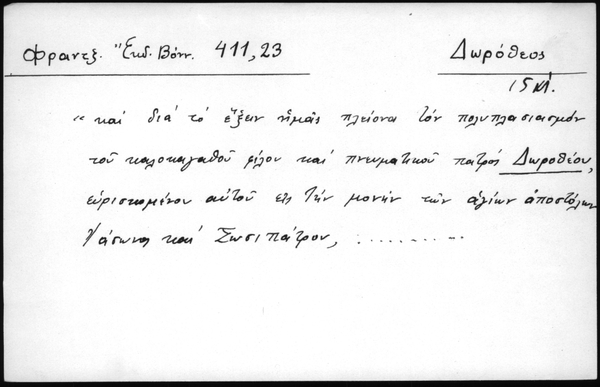 Φραντζ. Ἔκδ. Βόνν. 411,23
Δωρόθεος
15 κἰ.
"καὶ διὰ τὸ ἕξειν ἡμᾶς πλείονα τὸν πολυπλασιασμὸν
τοῦ καλοκαγαθοῦ φίλου καὶ πνευματικοῦ πατρὸς Δωροθέου,
εὑρισκομένου αὐτοῦ εἰς τὴν μονὴν τῶν ἁγίων ἀποστόλων
Ἰάσωνος καὶ Σωσιπάτρου, ..........